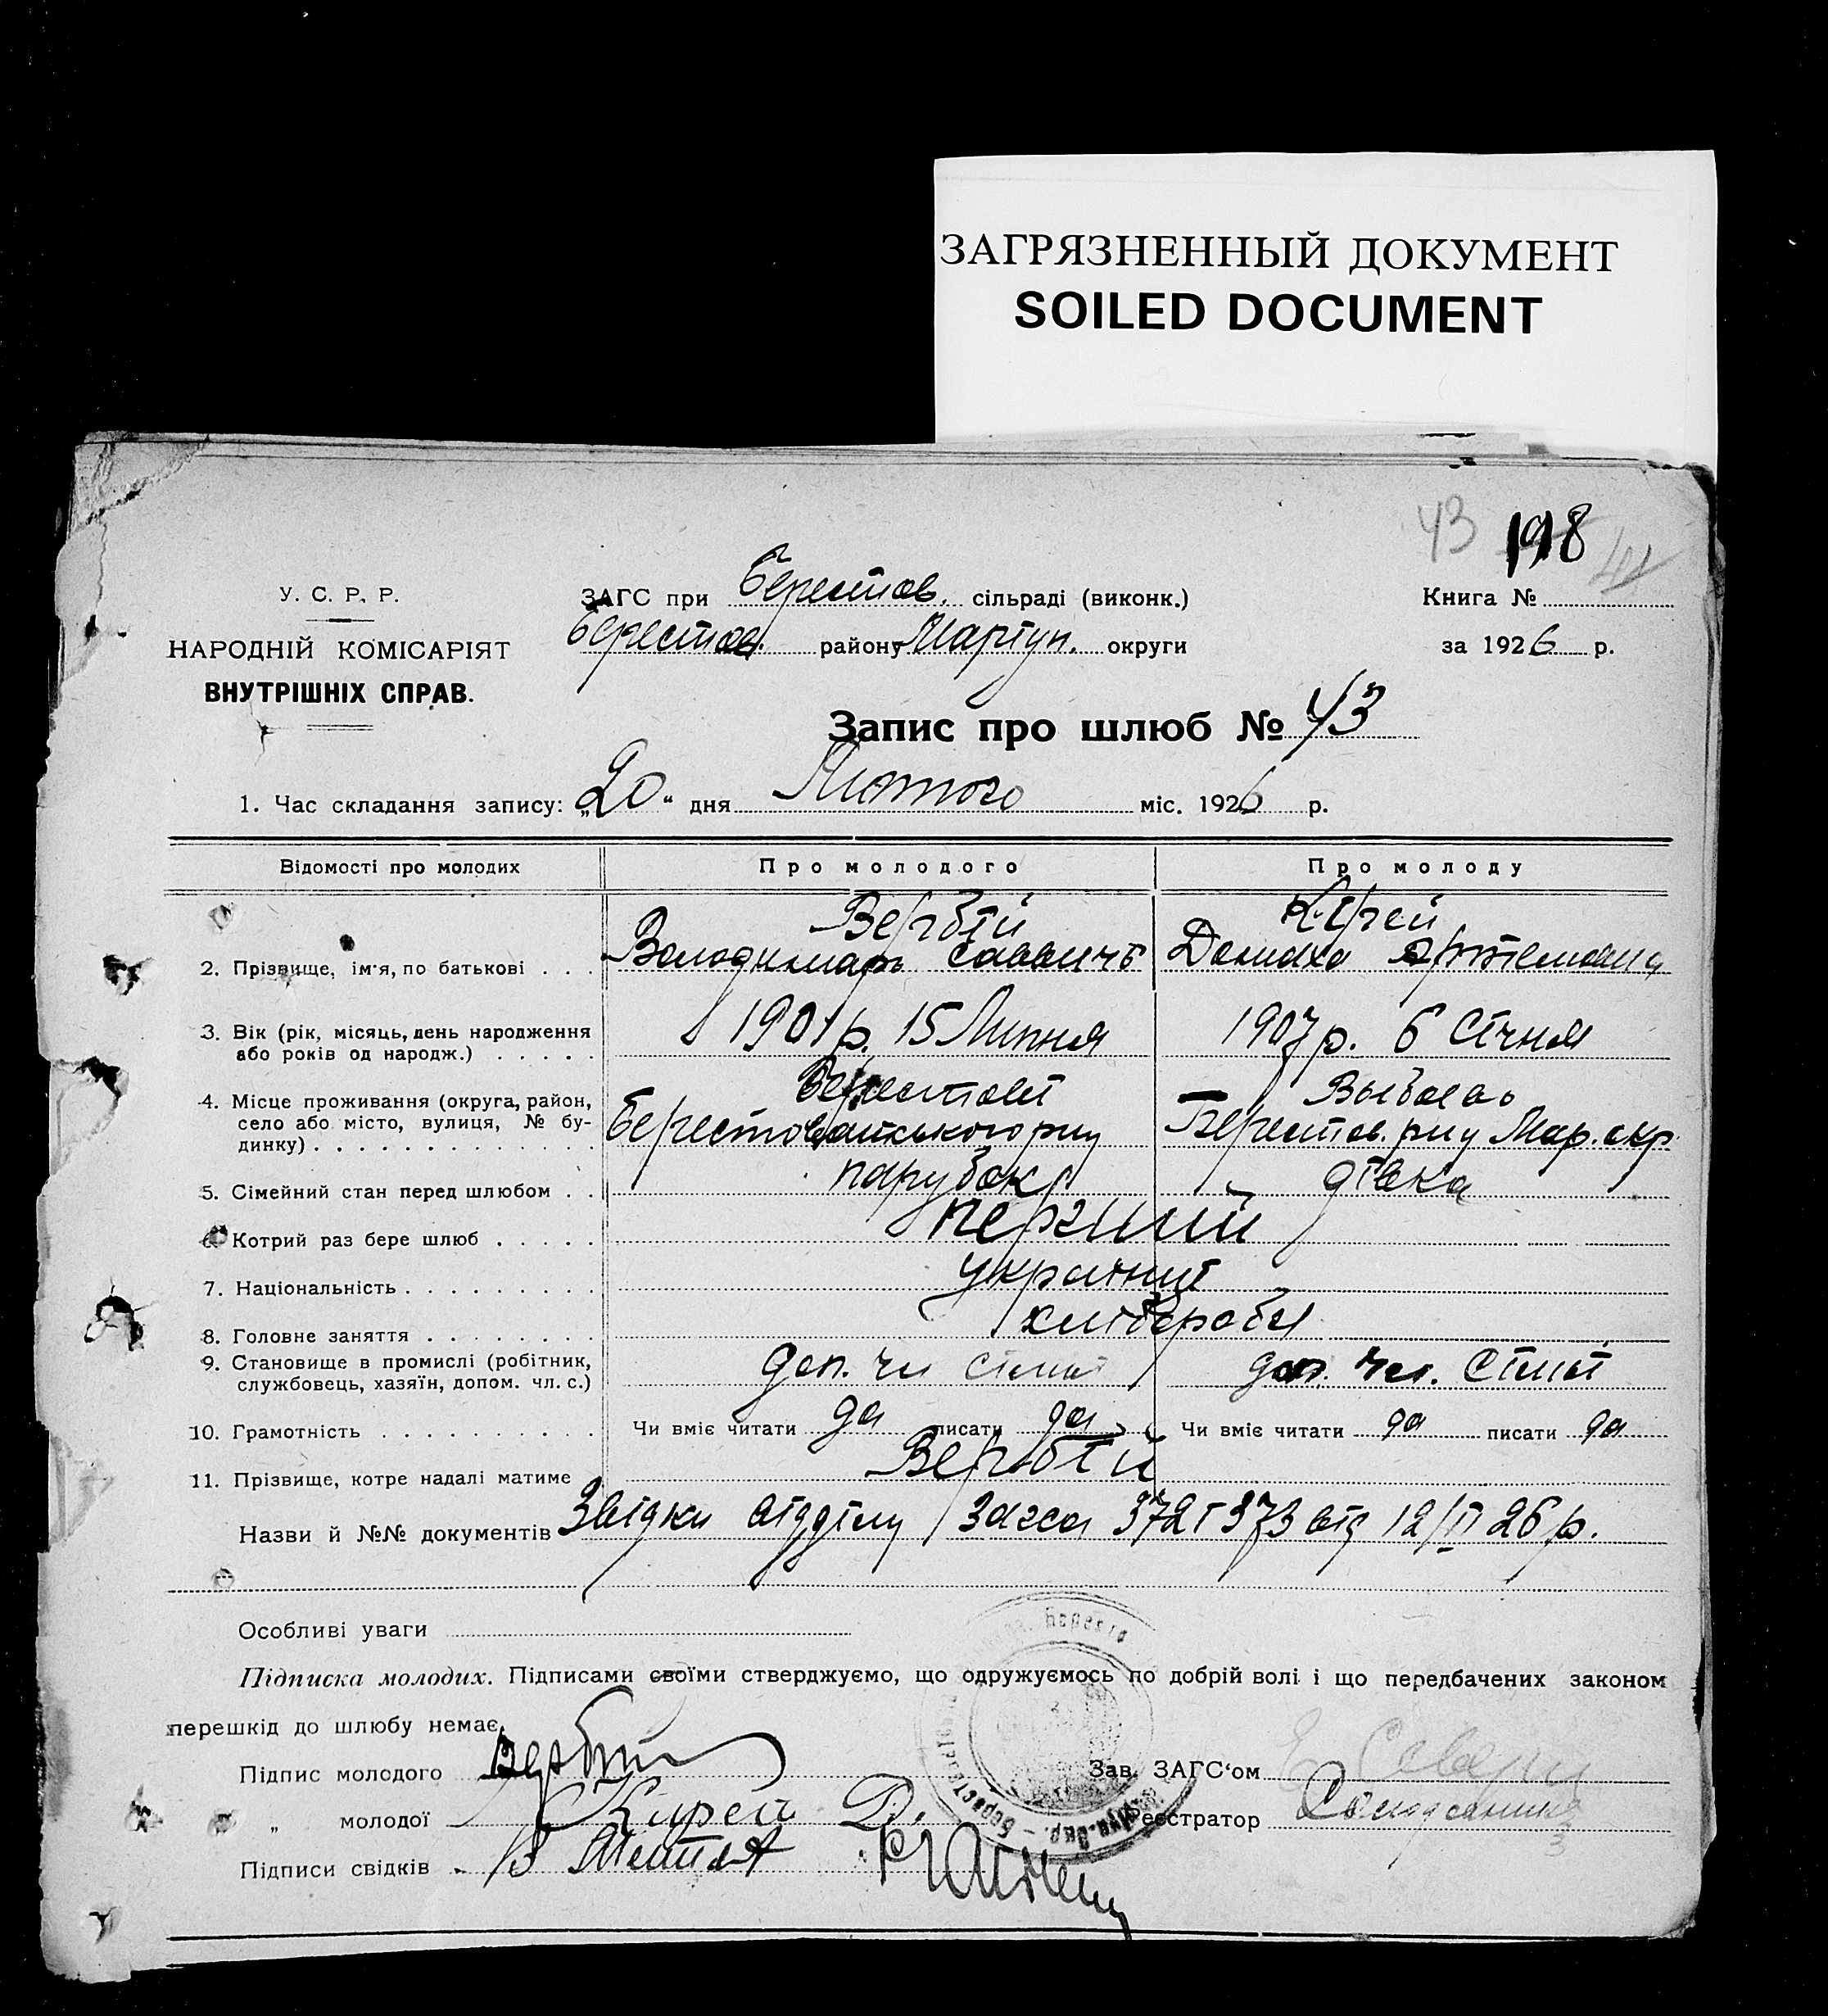 ЗАГРЯЗНЕННЫЙ ДОКУМЕНТ
SOILED DOCUMENT
43 198
У. С. Р. Р.
НАРОДНІЙ КОМІСАРІЯТ
ВНУТРІШНІХ СПРАВ.
ЗАГС при Берестов. сільраді (виконк.)
Берестов. району Маріуп. округи
Книга №
за 1926 р.
Запис про шлюб № 43
1. Час складання запису: „20“ дня Лютого міс. 1926 р.
Відомості про молодих Про молодого Про молоду
Вербій Кірей
2. Прізвище, ім'я, по батькові . . . Володимарь Саввичъ
3. Вік (рік, місяць, день народження 1901 р. 15 Липня 1907 р. 6 Січня
або років од народж.) . . . . .
4. Місце проживання (округа, район,
село або місто, вулиця, № бу-
динку) . . . . . . . . . . . . . Берестов. р-ну Мар. окр.
5. Сімейний стан перед шлюбом . . парубок дівка
6. Котрий раз бере шлюб . . . . . перший
7. Національність . . . . . . . . . українці
8. Головне заняття . . . . . . . . хлібороби
9. Становище в промислі (робітник, доп. чл. сімьї доп. чл. сімьї
службовець, хазяїн, допом. чл. с.)
10. Грамотність . . . . . . . . . . Чи вміє читати да писати да Чи вміє читати да писати да
11. Прізвище, котре надалі матиме Вербій
Назви й №№ документів Звідки відділу Загса 372 і 373 від 12/II 26 р.
Особливі уваги
Підписка молодих. Підписами своїми стверджуємо, що одружуємось по добрій волі і що передбачених законом
перешкід до шлюбу немає.
Підпис молодого Вербій
„ молодої Кирей Д.
Підписи свідків
Зав. ЗАГС'ом
Реєстратор